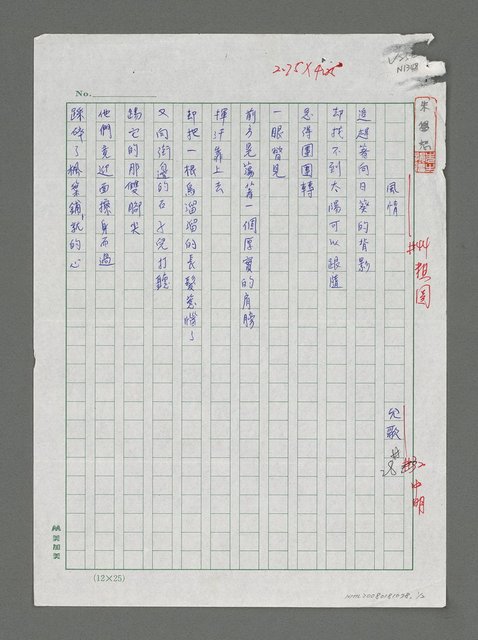 2.75×4.25
No.
朱學恕
風情
#44粗圓
尤歌
#28
#32中明
追趕著向日葵的背影
却找不到太陽可以跟隨
急得團團轉
一眼瞥見
前方晃蕩著一個厚實的肩膀
揮汗靠上去
却把一根烏溜溜的長髮惹惱了
又向街邊的石子兒打聽
踢它的那雙腳尖
他們竟迎面擦身而過
踩碎了檳榔鋪就的心
美加美
(12×25)
NMTL20080181078, 1/2